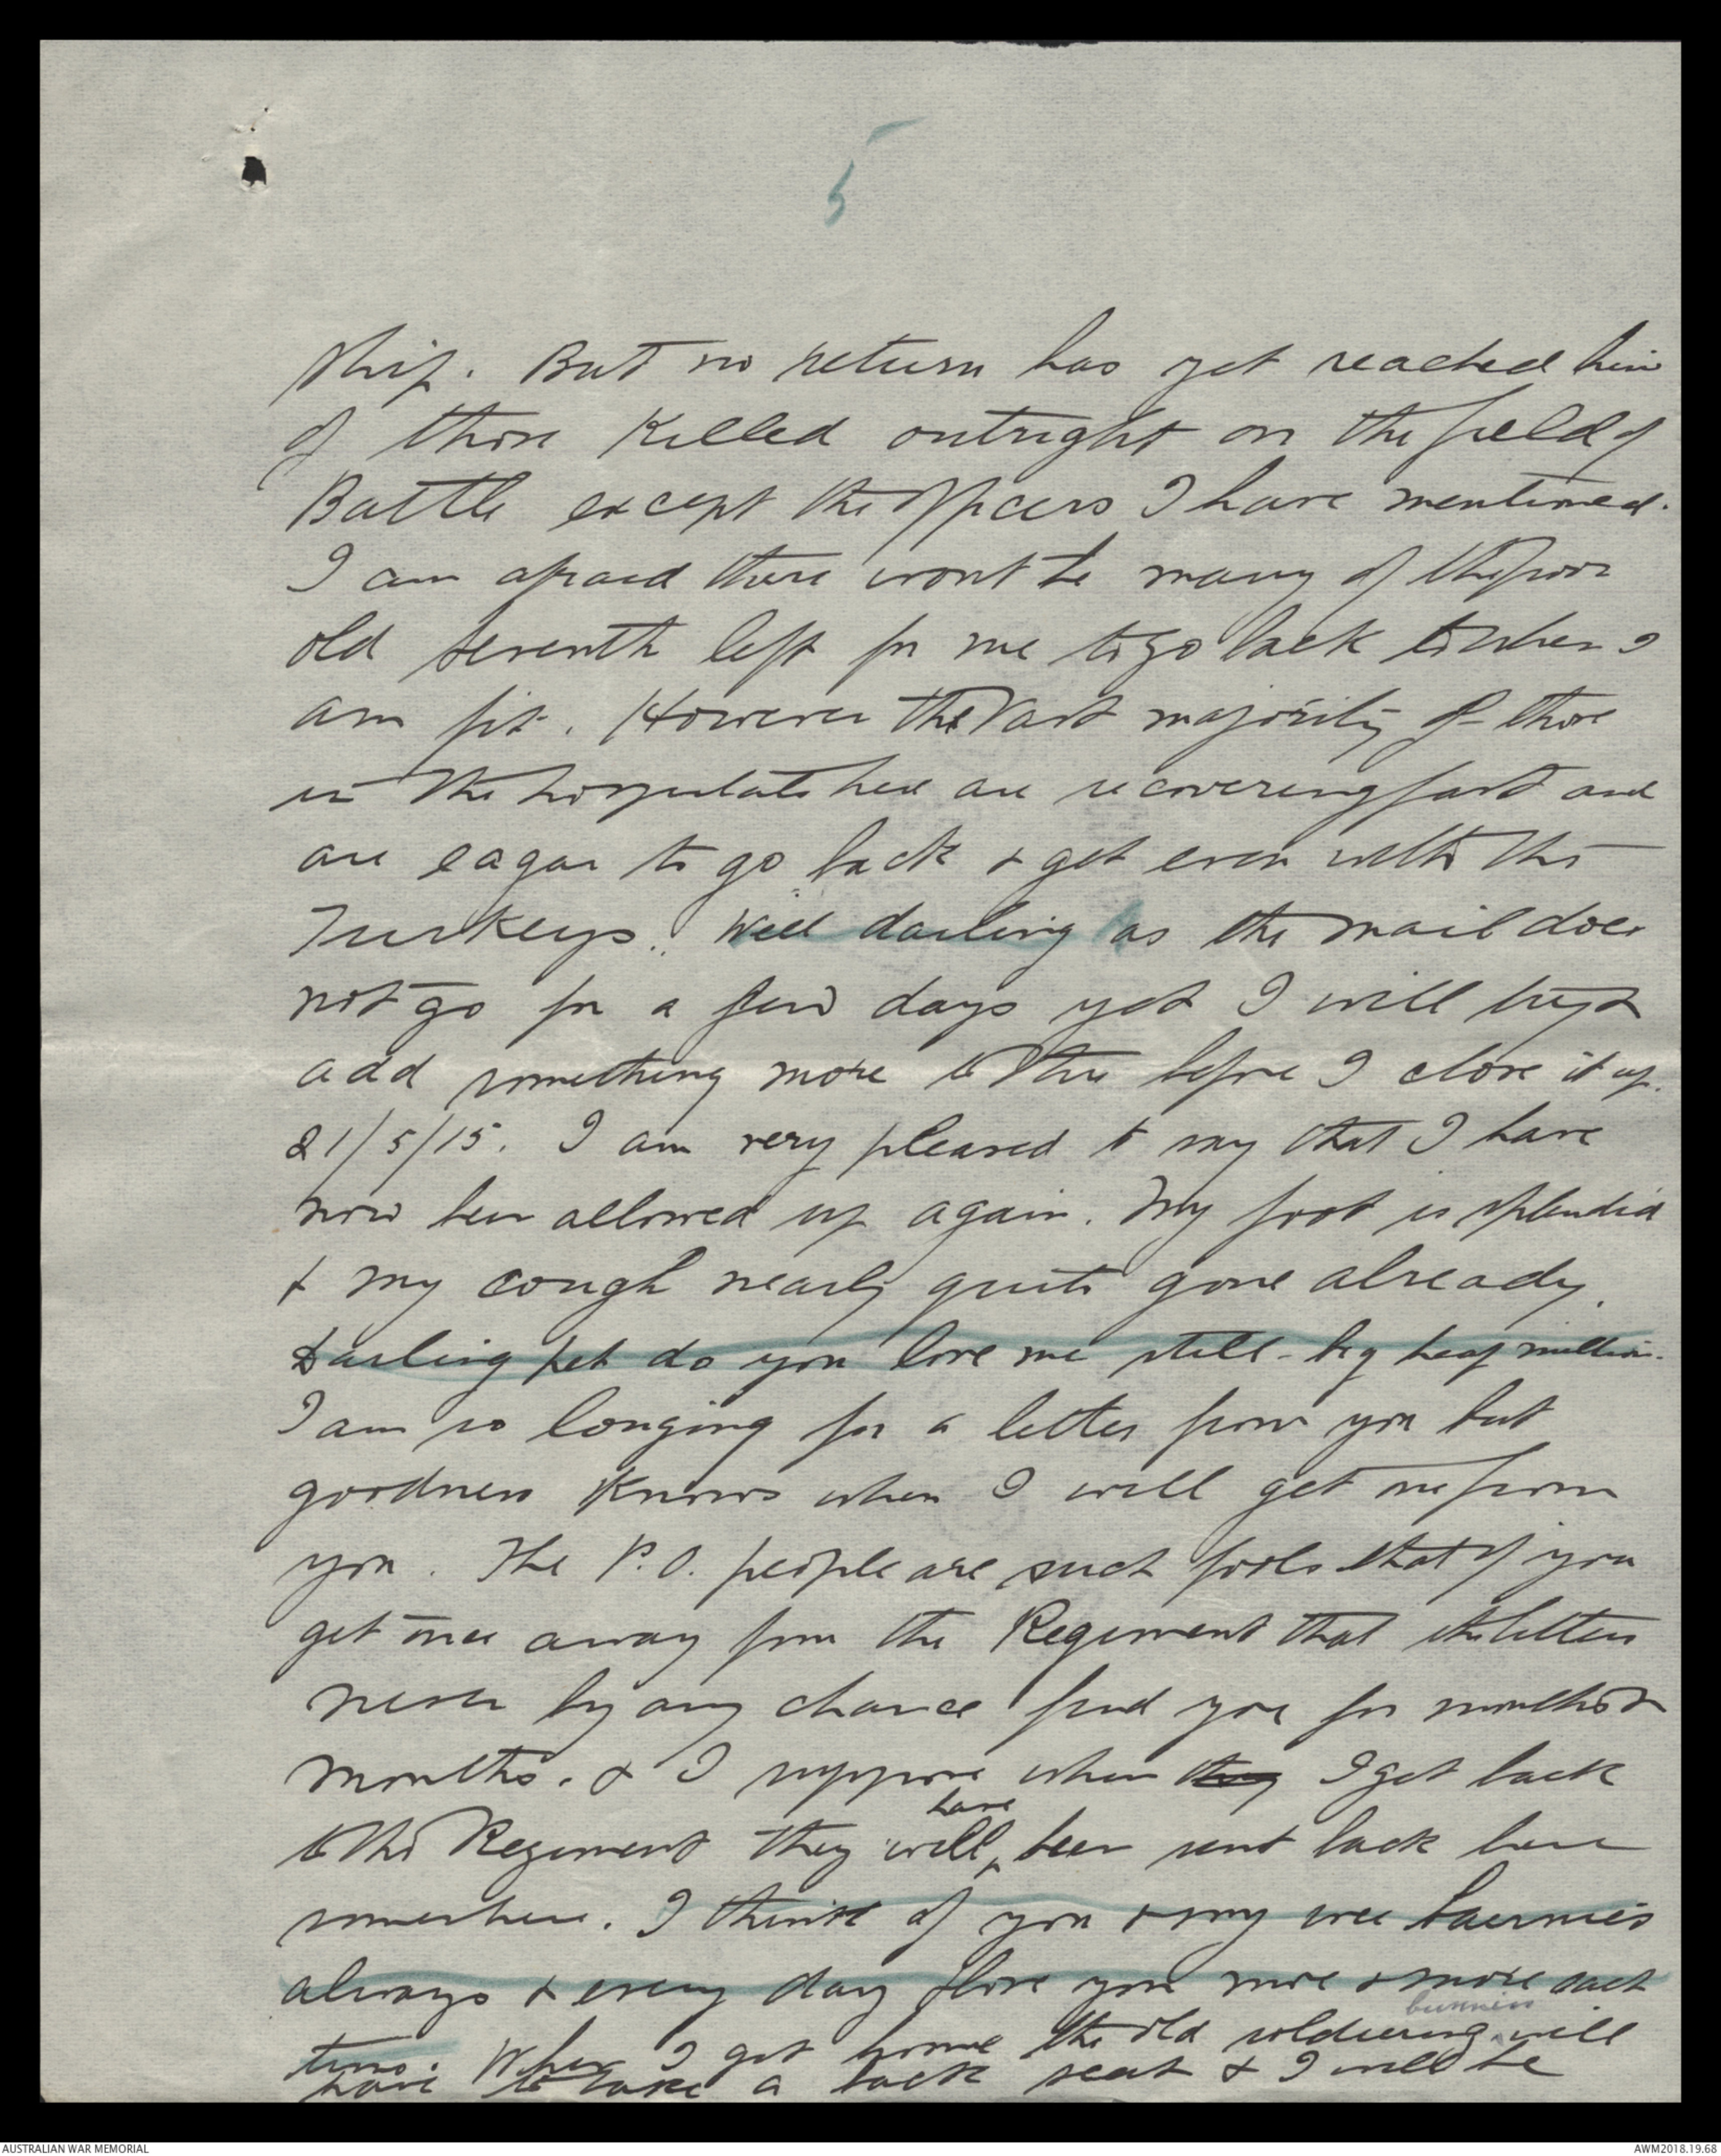 5
ship. But no return has yet reached him
of those killed outright on the field of
Battle except the officers I have mentioned.
I am afraid there wont be many of the poor
old seventh left for me to go back to when I
am fit. However the vast majority of those
in the hospitals here are recovering fast and
are eagar to go back & get even with the
Turkeys. Well darling as the mail does
not go for a few days yet I will try &
add something more to this before I close it up.
21/5/15. I am very pleased to say that I have
now been allowed up again. My foot is splendid
& my cough nearly quite gone already.
Darling pet do you love me still - big heap million.
I am so longing for a letter from you but
goodness knows when I will get one from
you. The P.O. people are such fools that if you
get once away from the Regiment that the letters
never by any chance find you for months &
months. & I suppose when they I get back
to the Regiment they will have been sent back here
somewhere. I think of you & my wee bairnies
always & every day I love you more & more each
time. When I get home the old soldiering business will
have to take a back seat & I will be
AUSTRALIAN WAR MEMORIAL
AWM2018.19.68